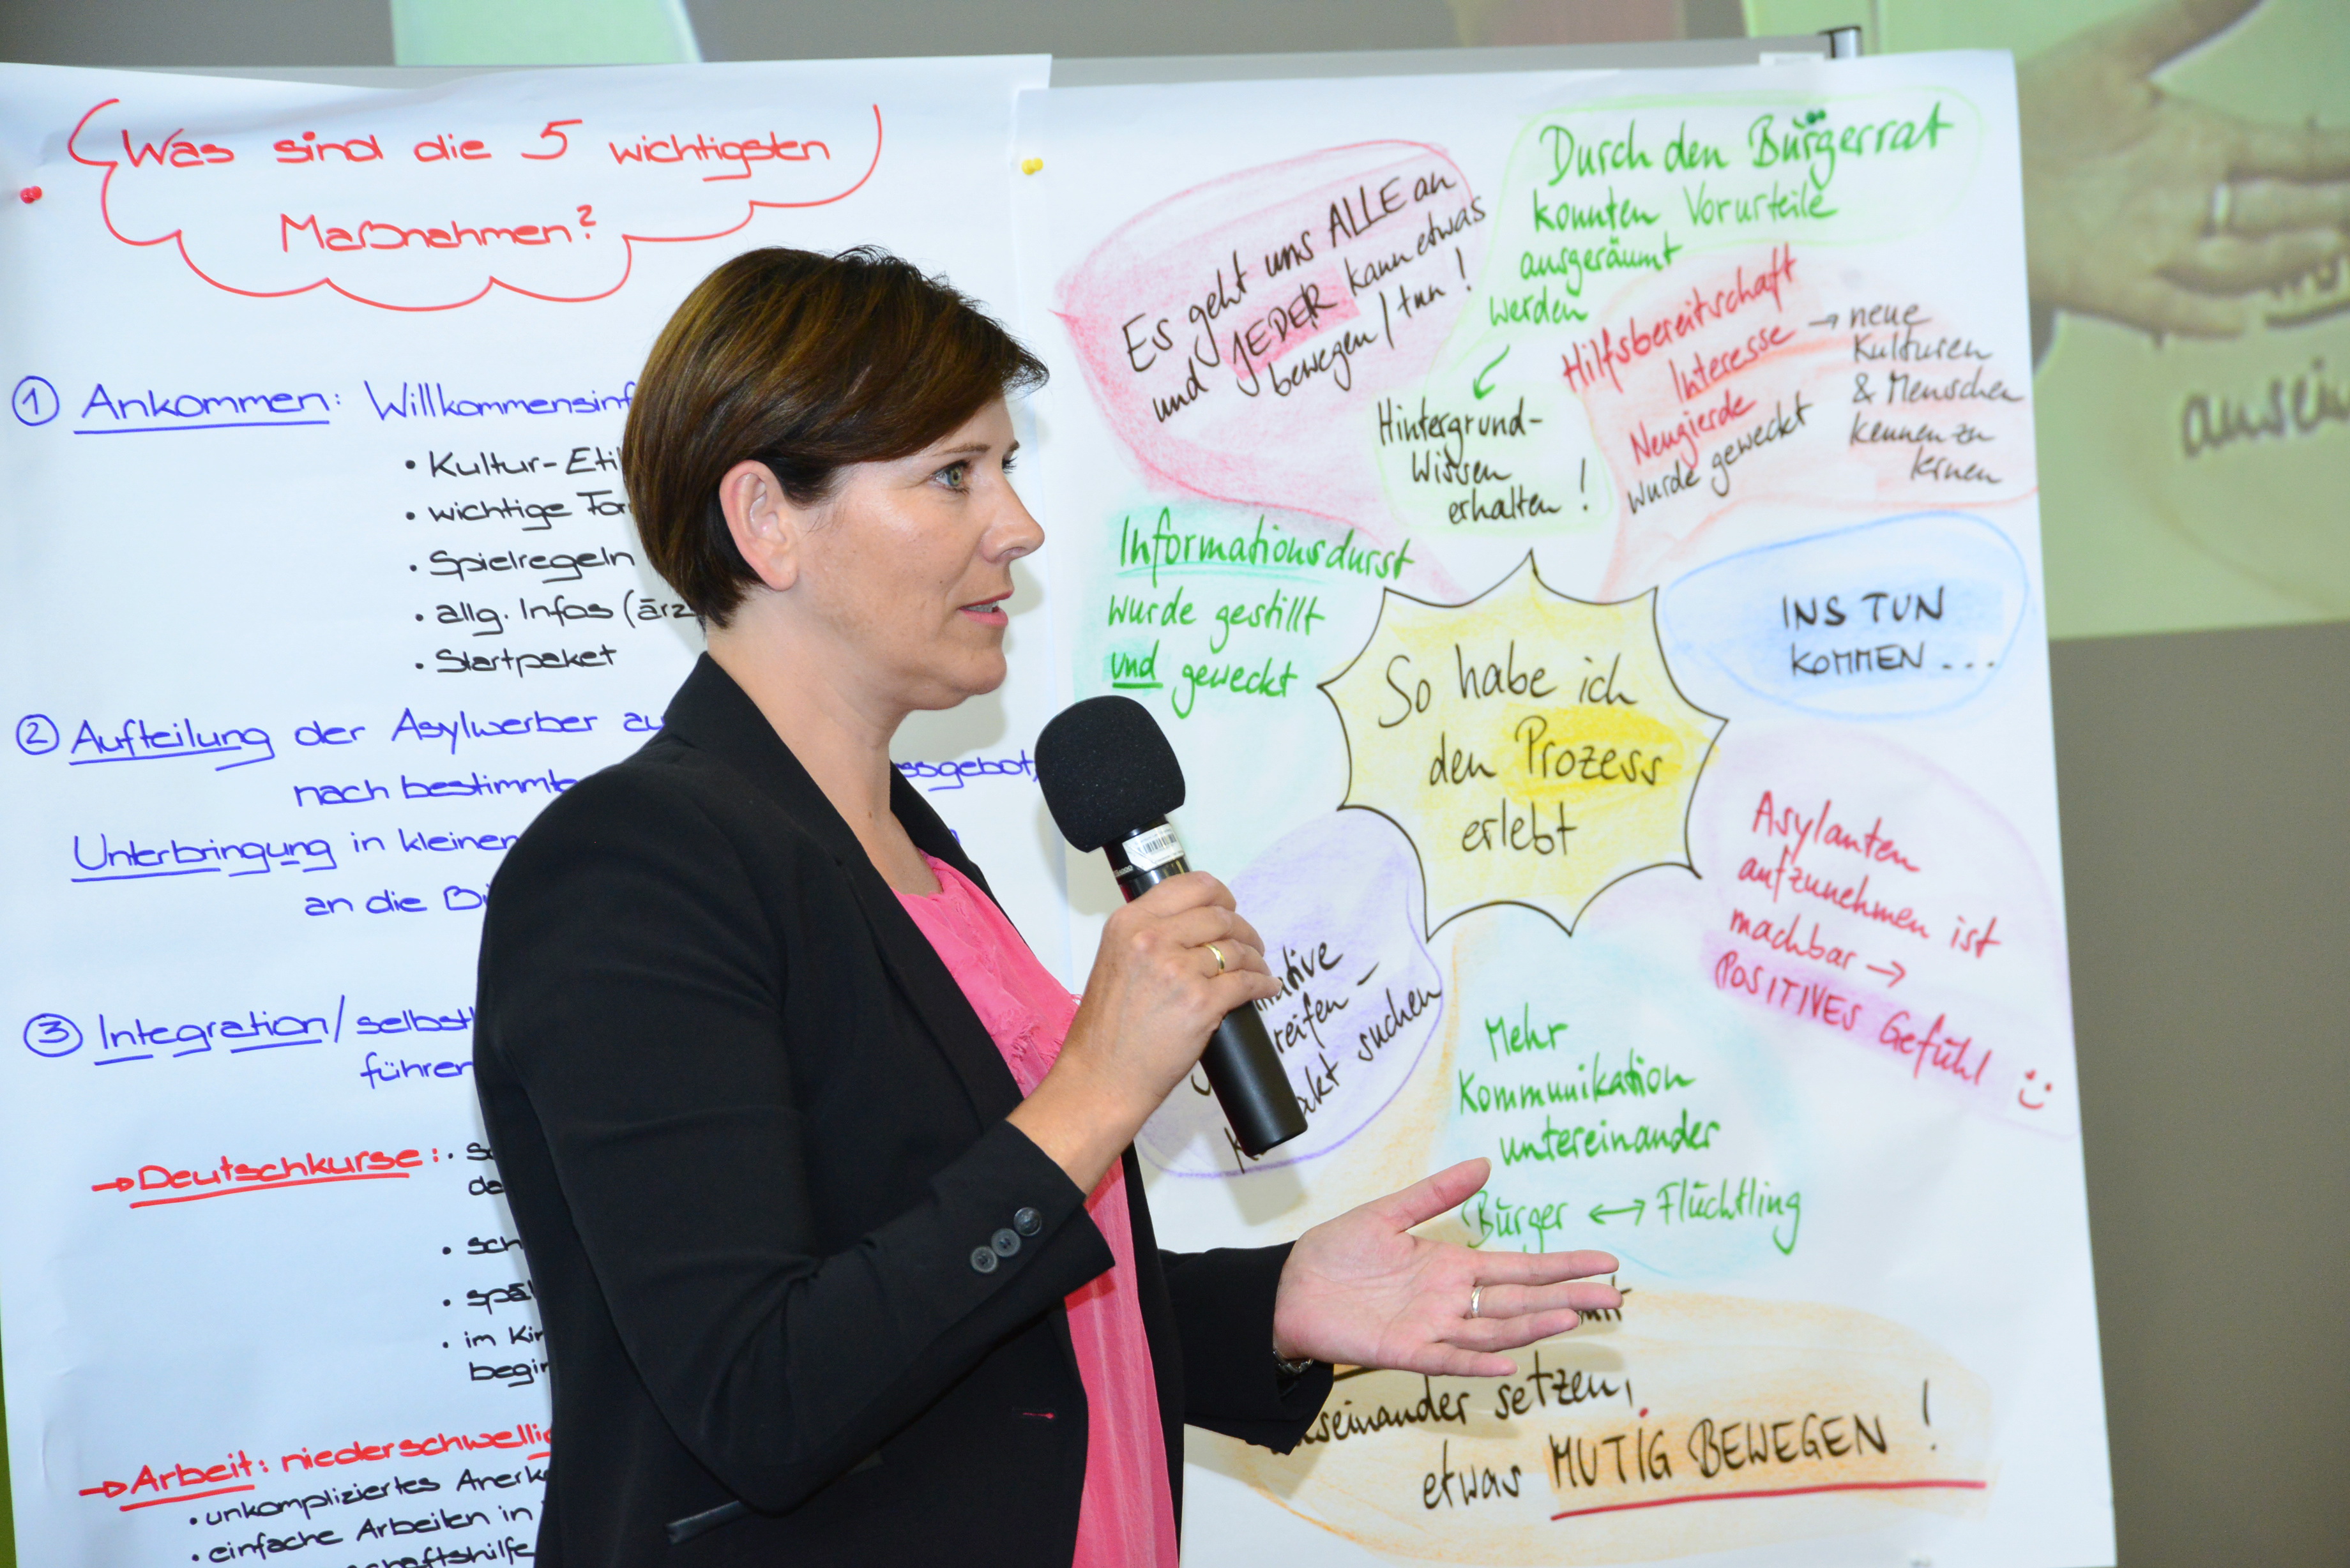 Was sind die 5 wichtigsten
Maßnahmen?
① Ankommen: Willkommensinf
• Kultur-Eti
• wichtige For
• Spielregeln
• allg. Infos (ärz
• Startpaket
② Aufteilung der Asylwerber au
nach bestimmte ssgebot,
Unterbringung in kleinen
an die Bü
③ Integration/selbst
führen
→ Deutschkurse: •
• sch
• spät
• im Kin
begin
→ Arbeit: niederschwellig
• unkompliziertes Anerk
• einfache Arbeiten in
schaftshilfe
Es geht uns ALLE an
und JEDER kann etwas
bewegen / tun!
Durch den Bürgerrat
konnten Vorurteile
ausgeräumt
werden
Hintergrund-
Wissen
erhalten!
Hilfsbereitschaft
Interesse
Neugierde
wurde geweckt
→ neue
Kulturen
& Menschen
kennen zu
lernen
Informationsdurst
wurde gestillt
und geweckt
So habe ich
den Prozess
erlebt
INS TUN
KOMMEN...
Asylanten
aufzunehmen ist
machbar →
POSITIVES Gefühl
iative
reifen –
akt suchen
Mehr
Kommunikation
untereinander
Bürger ↔ Flüchtling
mit
useinander setzen,
etwas MUTIG BEWEGEN!
ausein